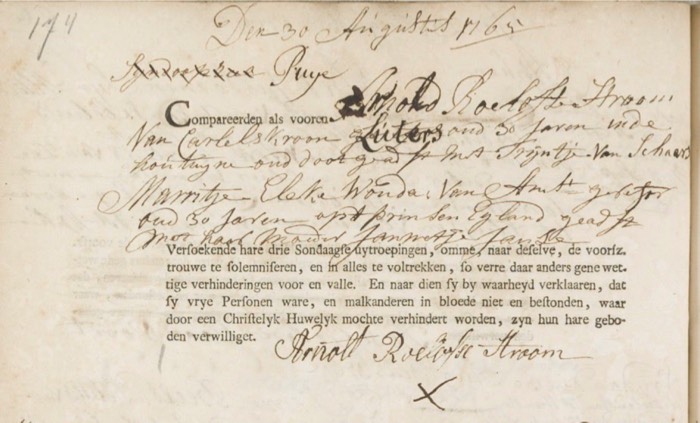 174
Den 30 Augustus 1765
Puije
Compareerden als vooren Arnold Roelofse Stroom
Van Carlelskroon Luters oud 30 Jaren inde
houttuyne oud dood geadst met Trijntje Van Schaars
Marritje Elske Wouda Van Amst geref
oud 30 Jaren opt prinsen Eyland geadst
met haar moeder Jannetje Janse
Versoekende hare drie Sondaagse uytroepingen, omme, naar deselve, de voorsz.
trouwe te solemniseren, en in alles te voltrekken, so verre daar anders gene wet-
tige verhinderingen voor en valle. En naar dien sy by waarheyd verklaaren, dat
sy vrye Personen ware, en malkanderen in bloede niet en bestonden, waar
door een Christelyk Huwelyk mochte verhindert worden, zyn hun hare gebo-
den verwilliget.
Arnolt Roelofse Stroom
X